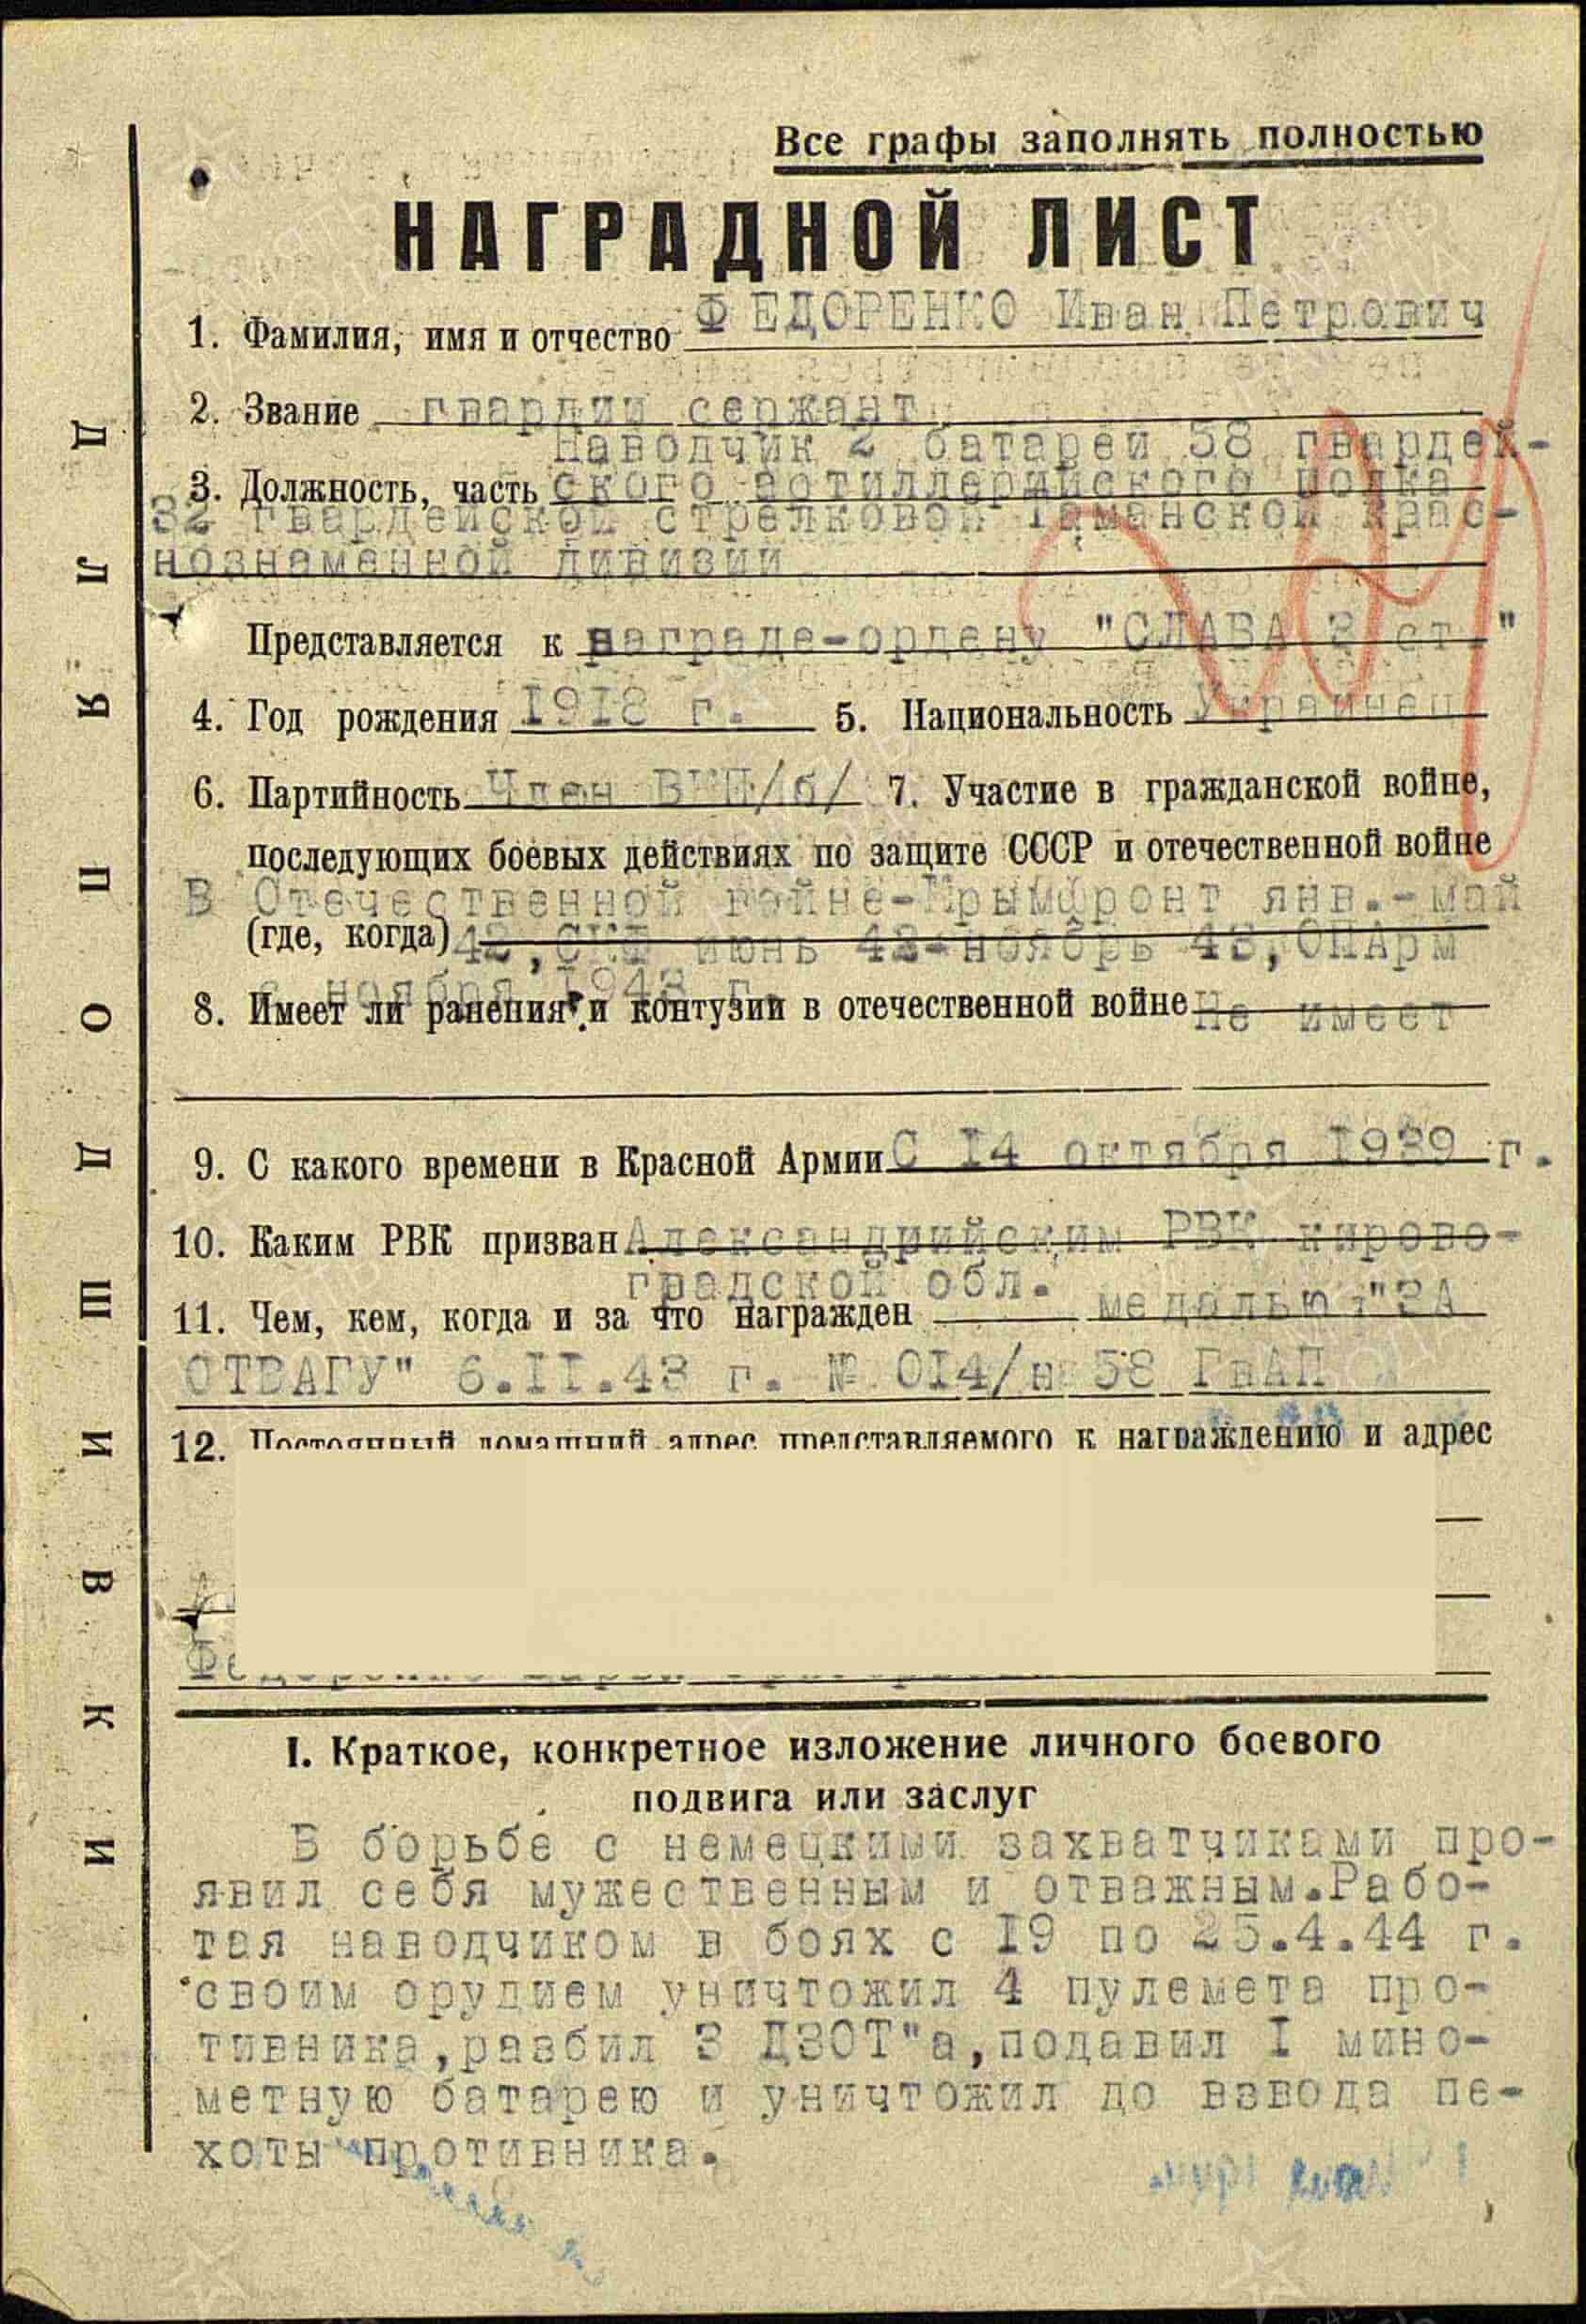 Все графы заполнять полностью
НАГРАДНОЙ ЛИСТ
1. Фамилия, имя и отчество ФЕДОРЕНКО Иван Петрович
2. Звание гвардии сержант
Наводчик 2 батареи 58 гвардей-
3. Должность, часть ского артиллерийского полка
32 гвардейской стрелковой Таманской Крас-
нознаменной дивизии
Представляется к награде-ордену "СЛАВА 3 ст."
4. Год рождения 1918 г. 5. Национальность Украинец
6. Партийность Член ВКП/б/ 7. Участие в гражданской войне,
последующих боевых действиях по защите СССР и отечественной войне
В Отечественной войне-Крымфронт янв.-май
(где, когда) 42, СКФ июнь 42-ноябрь 43, ОПАрм
с ноября 1943 г.
8. Имеет ли ранения и контузии в отечественной войне Не имеет
9. С какого времени в Красной Армии С I4 октября 1939 г.
10. Каким РВК призван Александрийским РВК кирово-
градской обл.
11. Чем, кем, когда и за что награжден медалью "ЗА
ОТВАГУ" 6.II.43 г. № 0I4/н 58 ГвАП
12. Постоянный домашний адрес представляемого к награждению и адрес
I. Краткое, конкретное изложение личного боевого
подвига или заслуг
В борьбе с немецкими захватчиками про-
явил себя мужественным и отважным.Рабо-
тая наводчиком в боях с I9 по 25.4.44 г.
своим орудием уничтожил 4 пулемета про-
тивника,разбил 3 ДЗОТ"а,подавил I мино-
метную батарею и уничтожил до взвода пе-
хоты противника.
ДЛЯ ПОДШИВКИ